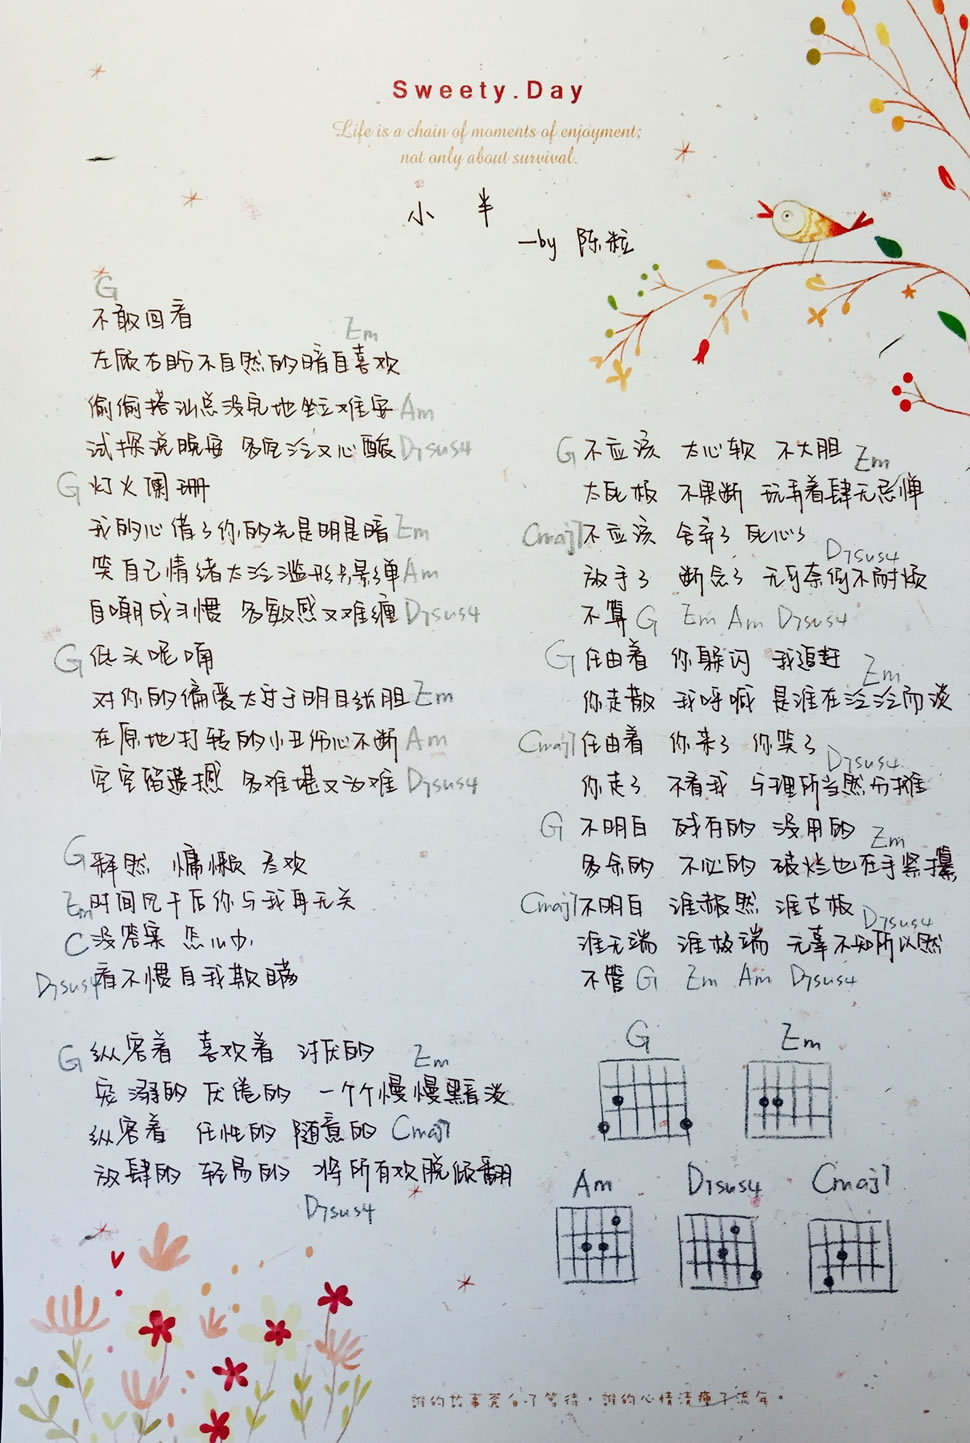 Sweety.Day
Life is a chain of moments of enjoyment;
not only about survival.
小 半
—by 陈粒
G
不敢回看
Em
左顾右盼不自然的暗自喜欢
偷偷搭讪总没完地坐立难安 Am
试探说晚安 多空泛又心酸 D7sus4
G 灯火阑珊
我的心借了你的光是明是暗 Em
笑自己情绪太泛滥形只影单 Am
自嘲成习惯 多敏感又难缠 D7sus4
G 低头呢喃
对你的偏爱太过于明目张胆 Em
在原地打转的小丑伤心不断 Am
空空留遗憾 多难堪又为难 D7sus4
G 释然 慵懒 尽欢
Em 时间风干后你与我再无关
C 没答案 怎么办
D7sus4 看不惯自我欺瞒
G 纵容着 喜欢着 讨厌的 Em
宠溺的 厌倦的 一个个慢慢黯淡
纵容着 任性的 随意的 Cmaj7
放肆的 轻易的 将所有欢脱倾翻
D7sus4
G 不应该 太心软 不大胆 Em
太死板 不果断 玩弄着肆无忌惮
Cmaj7 不应该 舍弃了 死心了
D7sus4
放手了 断念了 无可奈何不耐烦
不算 G Em Am D7sus4
G 任由着 你躲闪 我追赶 Em
你走散 我呼喊 是谁在泛泛而谈
Cmaj7 任由着 你来了 你笑了
D7sus4
你走了 不看我 与理所当然分摊
G 不明白 残存的 没用的 Em
多余的 不必的 破烂也在手紧攥
Cmaj7 不明白 谁赧然 谁古板 D7sus4
谁无端 谁极端 无辜不知所以然
不管 G Em Am D7sus4
G Em
Am D7sus4 Cmaj7